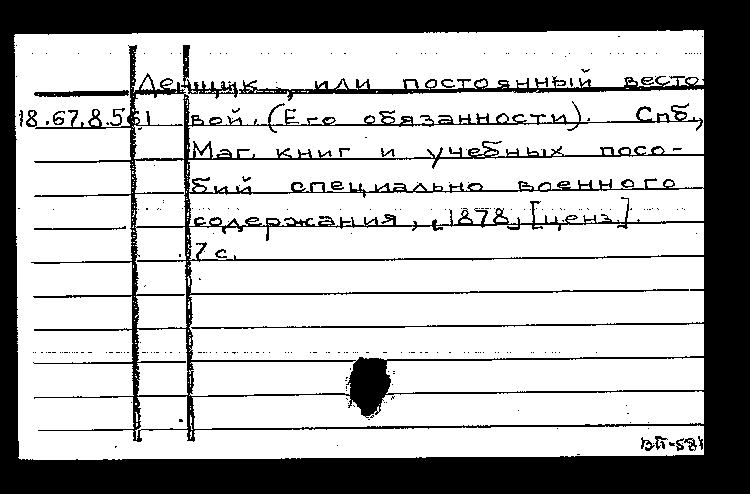 Денщик, или постоянный весто
18.67.8.561 вой. (Его обязанности). Спб.,
Маг. книг и учебных посо-
бий специально военного
содержания, [1878] [ценз.].
7 с.
ВП-581